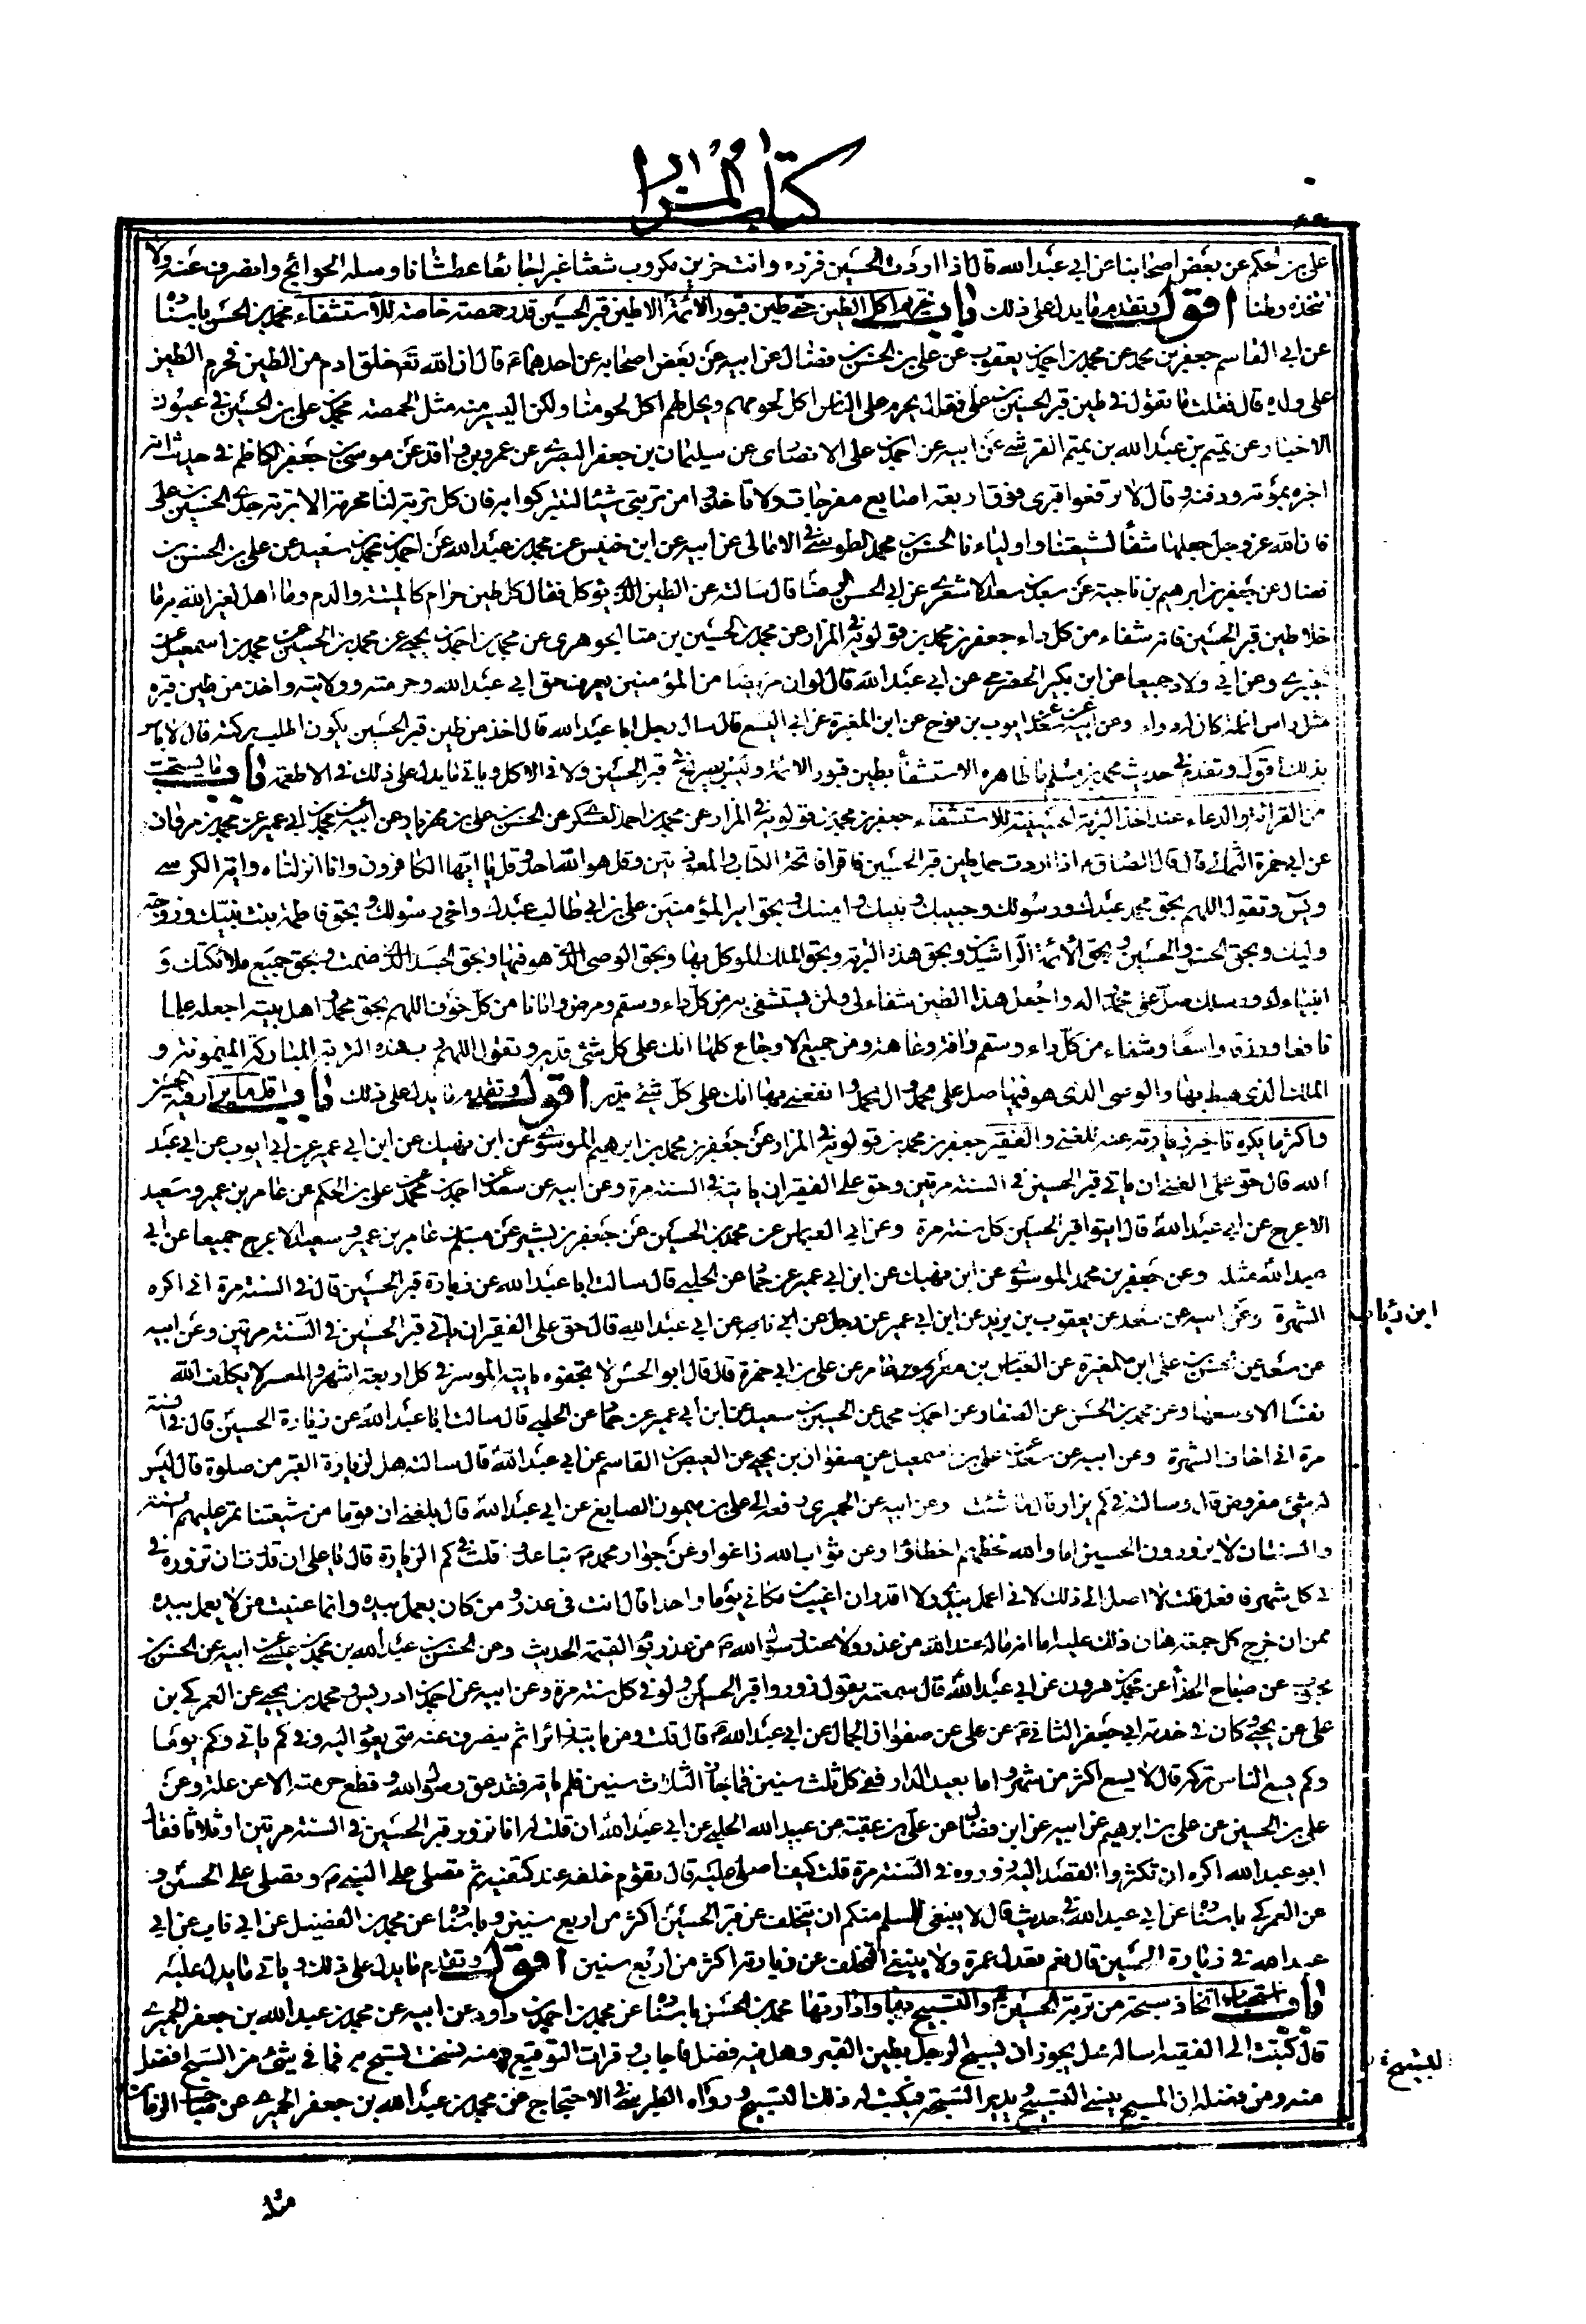 كتاب المزار
علي بن الحكم عن بعض اصحابنا عن ابي عبد الله قال اذا اردت الحسين فزره وانت حزين مكروب شعثا غبرا جائعا عطشانا وسله الحوائج وانصرف عنه ولا
تتخذه وطنا اقول وتقدم ما يدل على ذلك باب تحريم اكل الطين حتى طين قبور الائمة الا طين قبر الحسين قدر حمصة خاصة للاستشفاء محمد بن الحسن باسناده
عن ابي القاسم جعفر بن محمد عن محمد بن احمد بن يعقوب عن علي بن الحسن بن فضال عن ابيه عن بعض اصحابه عن احدهما ع قال ان الله تعه خلق ادم من الطين فحرم الطين
على ولده قال فقلت ما تقول في طين قبر الحسين بن علي فقال يحرم على الناس اكل لحومهم ويحل لهم اكل لحومنا ولكن اليسير منه مثل الحمصة محمد بن علي بن الحسين في عيون
الاخبار وعن تميم بن عبد الله بن تميم القرشي عن ابيه عن احمد بن علي الانصاى عن سليمان بن جعفر البصرى عن عمرو بن واقد عن موسى بن جعفر الكاظم في حديث انه
اخبره بموته ودفنه وقال لا ترفعوا قبرى فوق اربعة اصابع مفرجات ولا تاخذوا من تربتي شيئا لتتبركوا به فان كل تربة لنا محرمة الا تربة جدى الحسين بن علي
فان الله عز وجل جعلها شفأ لشيعتنا واوليائنا الحسن بن محمد الطوسي في الامالى عن ابيه عن ابن خنيس عن محمد بن عبد الله عن احمد بن محمد بن سعيد عن علي بن الحسن بن
فضال عن جعفر بن ابرهيم بن ناجية عن سعد بن سعد الاشعرى عن ابي الحسن الرضا قال سالته عن الطين الذى يؤكل فقال كل طين حرام كالميتة والدم وما اهل لغير الله به ما
خلا طين قبر الحسين فانه شفاء من كل داء جعفر بن محمد بن قولويه في المزار عن محمد بن الحسين بن مت الجوهرى عن محمد بن احمد بن يحيى عن محمد بن الحسين عن محمد بن اسمعيل عن
الخيبرى وعن ابي ولاد جميعا عن ابي بكير الحضرمى عن ابي عبد الله قال لو ان مريضا من المؤمنين يعرف حق ابي عبد الله وحرمته وولايته واخذ من طين قبره
مثل راس انملة كان له دواء وعن ابيه عن سعد عن ايوب بن نوح عن ابن المغيرة عن ابي اليسع قال سال رجل ابا عبد الله قال اخذ من طين قبر الحسين يكون اطلب بركته قال لا باس
بذلك اقول وتقدم في حديث محمد بن مسلم ما ظاهره الاستشفأ بطين قبور الائمة وليس بصريح في غير قبر الحسين ولا في الاكل وياتي ما يدل على ذلك في الاطعمة باب ما يستحب
من القرائة والدعاء عند اخذ التربة الحسينية للاستشفاء جعفر بن محمد بن قولويه في المزار عن محمد بن احمد العسكرى عن الحسن بن علي بن مهزيار عن ابيه عن محمد بن ابي عمير عن محمد بن مروان
عن ابي حمزة الثمالى قال قال الصادق ع اذا اردت حمل طين قبر الحسين فاقرا فاتحة الكتاب والمعوذتين وقل هو الله احد وقل يا ايها الكافرون وانا انزلناه واية الكرسى
ويس وتقول اللهم بحق محمد عبدك ورسولك وحبيبك ونبيك وامينك وبحق امير المؤمنين علي بن ابي طالب عبدك واخي رسولك وبحق فاطمة بنت نبيك وزوجة
وليك وبحق الحسن والحسين وبحق الائمة الراشدين وبحق هذه التربة وبحق الملك الموكل بها وبحق الوصى الذى هو فيها وبحق الجسد الذى ضمت وبحق جميع ملائكتك و
انبيائك ورسلك صل على محمد واله واجعل هذا الطين شفاء لي ولمن يستشفى به من كل داء وسقم ومرض وامانا من كل خوف اللهم بحق محمد واهل بيته اجعله علما
نافعا ورزقا واسعا وشفاء من كل داء وسقم وافة وعاهة ومن جميع الاوجاع كلها انك على كل شئ قدير وتقول اللهم رب هذه التربة المباركة الميمونة و
الملك الذى هبط بها والوصى الذى هو فيها صل على محمد وال محمد وانفعني بها انك على كل شئ قدير اقول وتقدم ما يدل على ذلك باب اقل ما يزار فيه الحسين
واكثر ما يكره تاخير زيارته عنه للغني والفقير جعفر بن محمد بن قولويه في المزار عن جعفر بن محمد بن ابرهيم الموسوى عن ابن نهيك عن ابن ابي عمير عن ابي ايوب عن ابي عبد
الله قال حق على الغني ان ياتي قبر الحسين في السنة مرتين وحق على الفقير ان ياتيه في السنة مرة وعن ابيه عن سعد عن احمد بن محمد عن علي بن الحكم عن عامر بن عمير وسعيد
الاعرج عن ابي عبد الله قال ايتوا قبر الحسين كل سنة مرة وعن ابي العباس عن محمد بن الحسين عن جعفر بن بشير عن مسلم عن عامر بن عمير وسعيد الاعرج جميعا عن ابي
عبد الله مثله وعن جعفر بن محمد الموسوى عن ابن نهيك عن ابن ابي عمير عن حماد عن الحلبي قال سالت ابا عبد الله عن زيارة قبر الحسين قال في السنة مرة اني اكره
الشهرة وعن ابيه عن سعد عن يعقوب بن يزيد عن ابن ابي عمير عن رجل عن ابي ناب عن ابي عبد الله قال حق على الفقير ان ياتي قبر الحسين في السنة مرتين وعن ابيه
ابن رئاب
عن سعد عن الحسن بن علي ابن المغيرة عن العباس بن عامر عن علي بن ابي حمزة قال قال ابو الحسن لا تجفوه ياتيه الموسر في كل اربعة اشهر والمعسر لا يكلف الله
نفسا الا وسعها وعن محمد بن الحسن عن الصفار عن احمد بن محمد عن الحسين بن سعيد عن ابن ابي عمير عن حماد عن الحلبي قال سالت ابا عبد الله عن زيارة الحسين قال في السنة
مرة اني اخاف الشهرة وعن ابيه عن سعد عن علي بن اسمعيل عن صفوان بن يحيى عن العيص بن القاسم عن ابي عبد الله قال سالته هل لزيارة القبر من صلوة قال ليس
له شئ مفروض قال وسالته في كم يزار قال ما شئت وعن ابيه عن الحميرى رفعه الى علي بن ميمون الصايغ عن ابي عبد الله قال بلغني ان قوما من شيعتنا تمر عليهم السنة
والسنتان لا يزورون الحسين اما والله لحظهم اخطاؤا وعن ثواب الله زاغوا وعن جوار محمد تباعدوا قلت في كم الزيارة قال يا علي ان قدرت ان تزوره
في كل شهر فافعل قلت لا اصل الى ذلك لاني اعمل بيدى ولا اقدر ان اغيب من مكاني يوما واحدا قال انت في عذر ومن كان يعمل بيده وانما عنيت من لا يعمل بيده
ممن ان خرج كل جمعة هان ذلك عليه اما انه ما له عند الله من عذر ولا عند رسول الله من عذر يوم القيمة الحديث وعن الحسن بن عبد الله بن محمد بن عيسى عن ابيه عن الحسن بن
محبوب عن صباح الحذأ عن محمد بن مرون عن ابي عبد الله قال سمعته يقول زوروا قبر الحسين ولو في كل سنة مرة وعن ابيه عن احمد بن ادريس ومحمد بن يحيى عن العمركى بن
علي عن يحيى وكان في خدمة ابي جعفر الثاني ع عن علي عن صفوان الجمال عن ابي عبد الله ع قال قلت ومن ياتيه زائرا ثم ينصرف عنه متى يعود اليه وفي كم ياتي وكم يوما
وكم يسع الناس تركه قال لا يسع اكثر من شهر واما بعيد الدار ففي كل ثلث سنين فما جاز الثلاث سنين فلم ياته فقد عق رسول الله وقطع حرمته الا عن علة وعن
علي بن الحسين عن علي بن ابرهيم عن ابيه عن ابن فضال عن علي بن عقبة عن عبيد الله الحلبي عن ابي عبد الله ان قلت له انا نزور قبر الحسين في السنة مرتين او ثلاثا فقال
ابو عبد الله اكره ان تكثروا القصد اليه زوروه في السنة مرة قلت كيف اصلى عليه قال تقوم خلفه عند كتفيه ثم تصلى على النبي ص وتصلى على الحسين و
عن العمركى باسناده عن ابي عبد الله في حديث قال لا ينبغي للمسلم منكم ان يتخلف عن قبر الحسين اكثر من اربع سنين وباسناده عن محمد بن الفضيل عن ابي ناب عن ابي
عبد الله في زيارة الحسين قال نعم تعدل عمرة ولا ينبغي التخلف عن زيارته اكثر من اربع سنين اقول وتقدم ما يدل على ذلك وياتي ما يدل عليه
باب استحباب اتخاذ سبحة من تربة الحسين والتسبيح بها وادارتها محمد بن الحسن باسناده عن محمد بن احمد بن داود عن ابيه عن محمد بن عبد الله بن جعفر الحميرى
قال كتبت الى الفقيه اساله هل يجوز ان يسبح الرجل بطين القبر وهل فيه فضل فاجاب وقرات التوقيع ومنه نسخت تسبح به فما في شئ من السبح افضل
للتسبيح
منه ومن فضله ان المسبح ينسى التسبيح ويدير السبحة فيكتب له ذلك التسبيح ورواه الطبرسي في الاحتجاج عن محمد بن عبد الله بن جعفر الحميرى عن صاحب الزمان
مثله